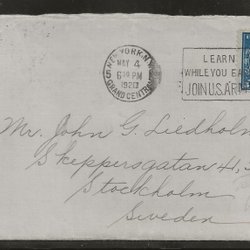 NEW YORK, N.Y.
MAY 4
5 6 PM
1920
GRAND CENTRAL
LEARN
WHILE YOU EA
JOIN U.S. ARM
Mr. John G. Liedholm
Skeppersgatan 41,
Stockholm
Sweden